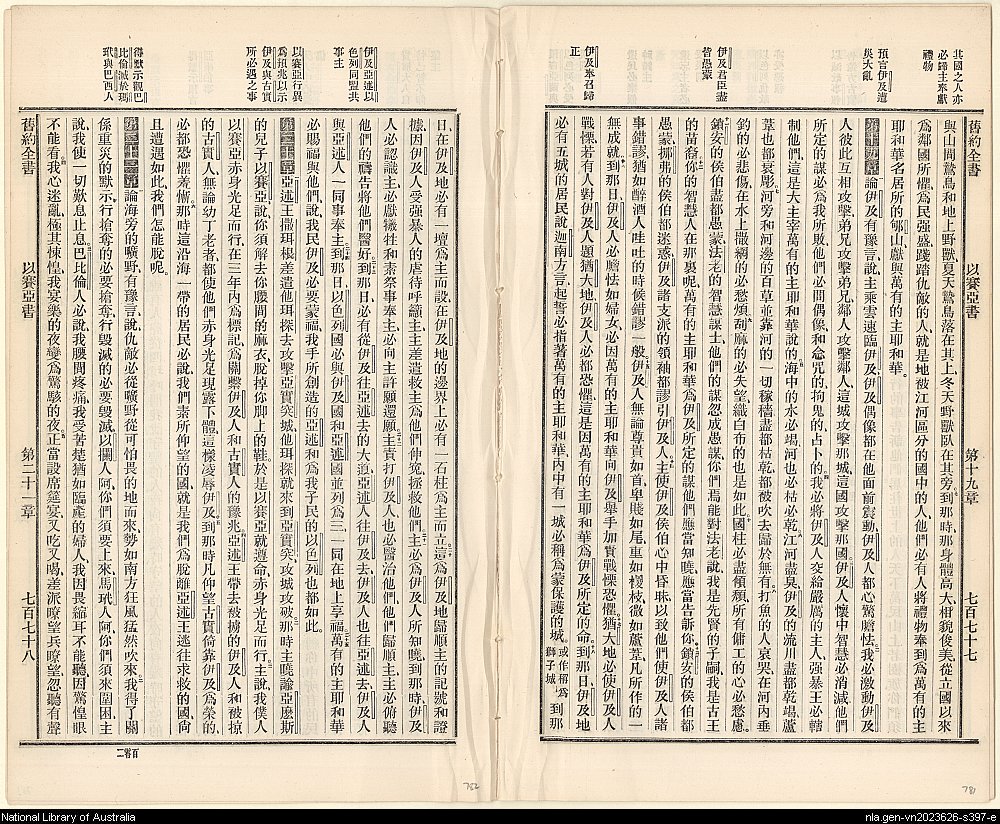 其國之人亦
必歸主奉獻
禮物
預言伊及遭
災大亂
伊及君臣盡
皆愚蒙
伊及奉召歸
正
舊約全書 以賽亞書 第十九章 七百七十七
與山間鷙鳥和地上野獸夏天鷙鳥落在其上冬天野獸臥在其旁到那時那身體高大相貌俊美從立國以來
爲鄰國所懼爲民強盛踐踏仇敵的人就是地被江河區分的國中的人他們必有人將禮物奉到爲萬有的主
耶和華名居所的郇山獻與萬有的主耶和華
第十九章論伊及有豫言說主乘雲速臨伊及伊及偶像都在他面前震動伊及人都心驚膽怯我必激動伊及
人彼此互相攻擊弟兄攻擊弟兄鄰人攻擊鄰人這城攻擊那城這國攻擊那國伊及人懷中智慧必消滅他們
所定的謀必爲我所敗他們必問偶像和念咒的拘鬼的占卜的我必將伊及人交給嚴厲的主人強暴王必轄
制他們這是大主宰萬有的主耶和華說的海中的水必竭河也必枯必乾江河盡臭伊及的流川盡都乾竭蘆
葦也都衰殘河旁和河邊的百草並靠河的一切稼穡盡都枯乾都被吹去歸於無有打魚的人哀哭在河內垂
釣的必悲傷在水上撒網的必愁煩刮麻的必失望織白布的也是如此國柱必盡傾頹所有傭工的心必愁慮
鎖安的侯伯盡都愚蒙法老的智慧謀士他們的謀忽成愚謀你們焉能對法老說我是先賢的子嗣我是古王
的苗裔你的智慧人在那裏呢萬有的主耶和華爲伊及所定的謀他們應當知曉應當告訴你鎖安的侯伯都
愚蒙挪弗的侯伯都迷惑伊及諸支派的領袖都謬引伊及人主使伊及侯伯心中昏昧以致他們使伊及人諸
事錯謬猶如醉酒人吐吐的時候錯謬一般伊及人無論尊貴如首卑賤如尾重如椶枝微如蘆葦凡所作的一
無成就到那日伊及人必膽怯如婦女必因萬有的主耶和華向伊及舉手加責戰慄恐懼猶大地必使伊及人
戰慄若有人對伊及人題猶大地伊及人必都恐懼這是因萬有的主耶和華爲伊及所定的命到那日伊及地
必有五城的居民說迦南方言起誓必指著萬有的主耶和華內中有一城必稱爲蒙保護的城或作稱爲獅子城到那
伊及亞述以
色列同盟共
事主
以賽亞行異
爲預兆以示
伊及與古實
所必遇之事
得默示觀巴
比倫滅於瑪
玳與巴西人
日在伊及地必有一壇爲主而設在伊及地的邊界上必有一石柱爲主而立這爲伊及地歸順主的記號和證
據因伊及人受強暴人的虐待呼籲主主差遣救主爲他們伸寃拯救他們主必爲伊及人所知曉到那時伊及
人必認識主必獻犧牲和素祭事奉主必向主許願還願主責打伊及人也必醫治他們他們歸順主主必俯聽
他們的禱告將他們醫好到那日必有從伊及往亞述去的大道亞述人往伊及去伊及人也往亞述去伊及人
與亞述人一同事奉主到那日以色列國必與伊及國和亞述國並列爲三一同在地上享福萬有的主耶和華
必賜福與他們說我民伊及必要蒙福我手所創造的亞述和爲我子民的以色列也都如此
第二十章亞述王撒珥根差遣他珥探去攻擊亞實突城他珥探就來到亞實突攻城攻破那時主曉諭亞麽斯
的兒子以賽亞說你須解去你腰間的麻衣脫掉你脚上的鞋於是以賽亞就遵命赤身光足而行主說我僕人
以賽亞赤身光足而行在三年內爲標記爲關繫伊及人和古實人的豫兆亞述王帶去被擄的伊及人和被掠
的古實人無論幼丁老者都使他們赤身光足現露下體這樣凌辱伊及到那時凡仰望古實倚靠伊及爲榮的
必都恐懼羞慚那時這沿海一帶的居民必說我們素所仰望的國就是我們爲脫離亞述王逃往求救的國尚
且遭遇如此我們怎能脫呢
第二十一章論海旁的曠野有豫言說仇敵必從曠野從可怕畏的地而來勢如南方狂風猛然吹來我得了關
係重災的默示行搶奪的必要搶奪行毀滅的必要毀滅以攔人阿你們須要上來馬玳人阿你們須來圍困主
說我使一切歎息止息巴比倫人必說我腰間疼痛我受苦楚猶如臨產的婦人我因畏縮耳不能聽因驚惶眼
不能看我心迷亂極其悚惶我宴樂的夜變爲驚駭的夜正當設席筵宴又吃又喝差派嘹望兵嘹望忽聽有聲
舊約全書 以賽亞書 第二十一章 七百七十八
百零二
782
781
National Library of Australia
nla.gen-vn2023626-s397-e